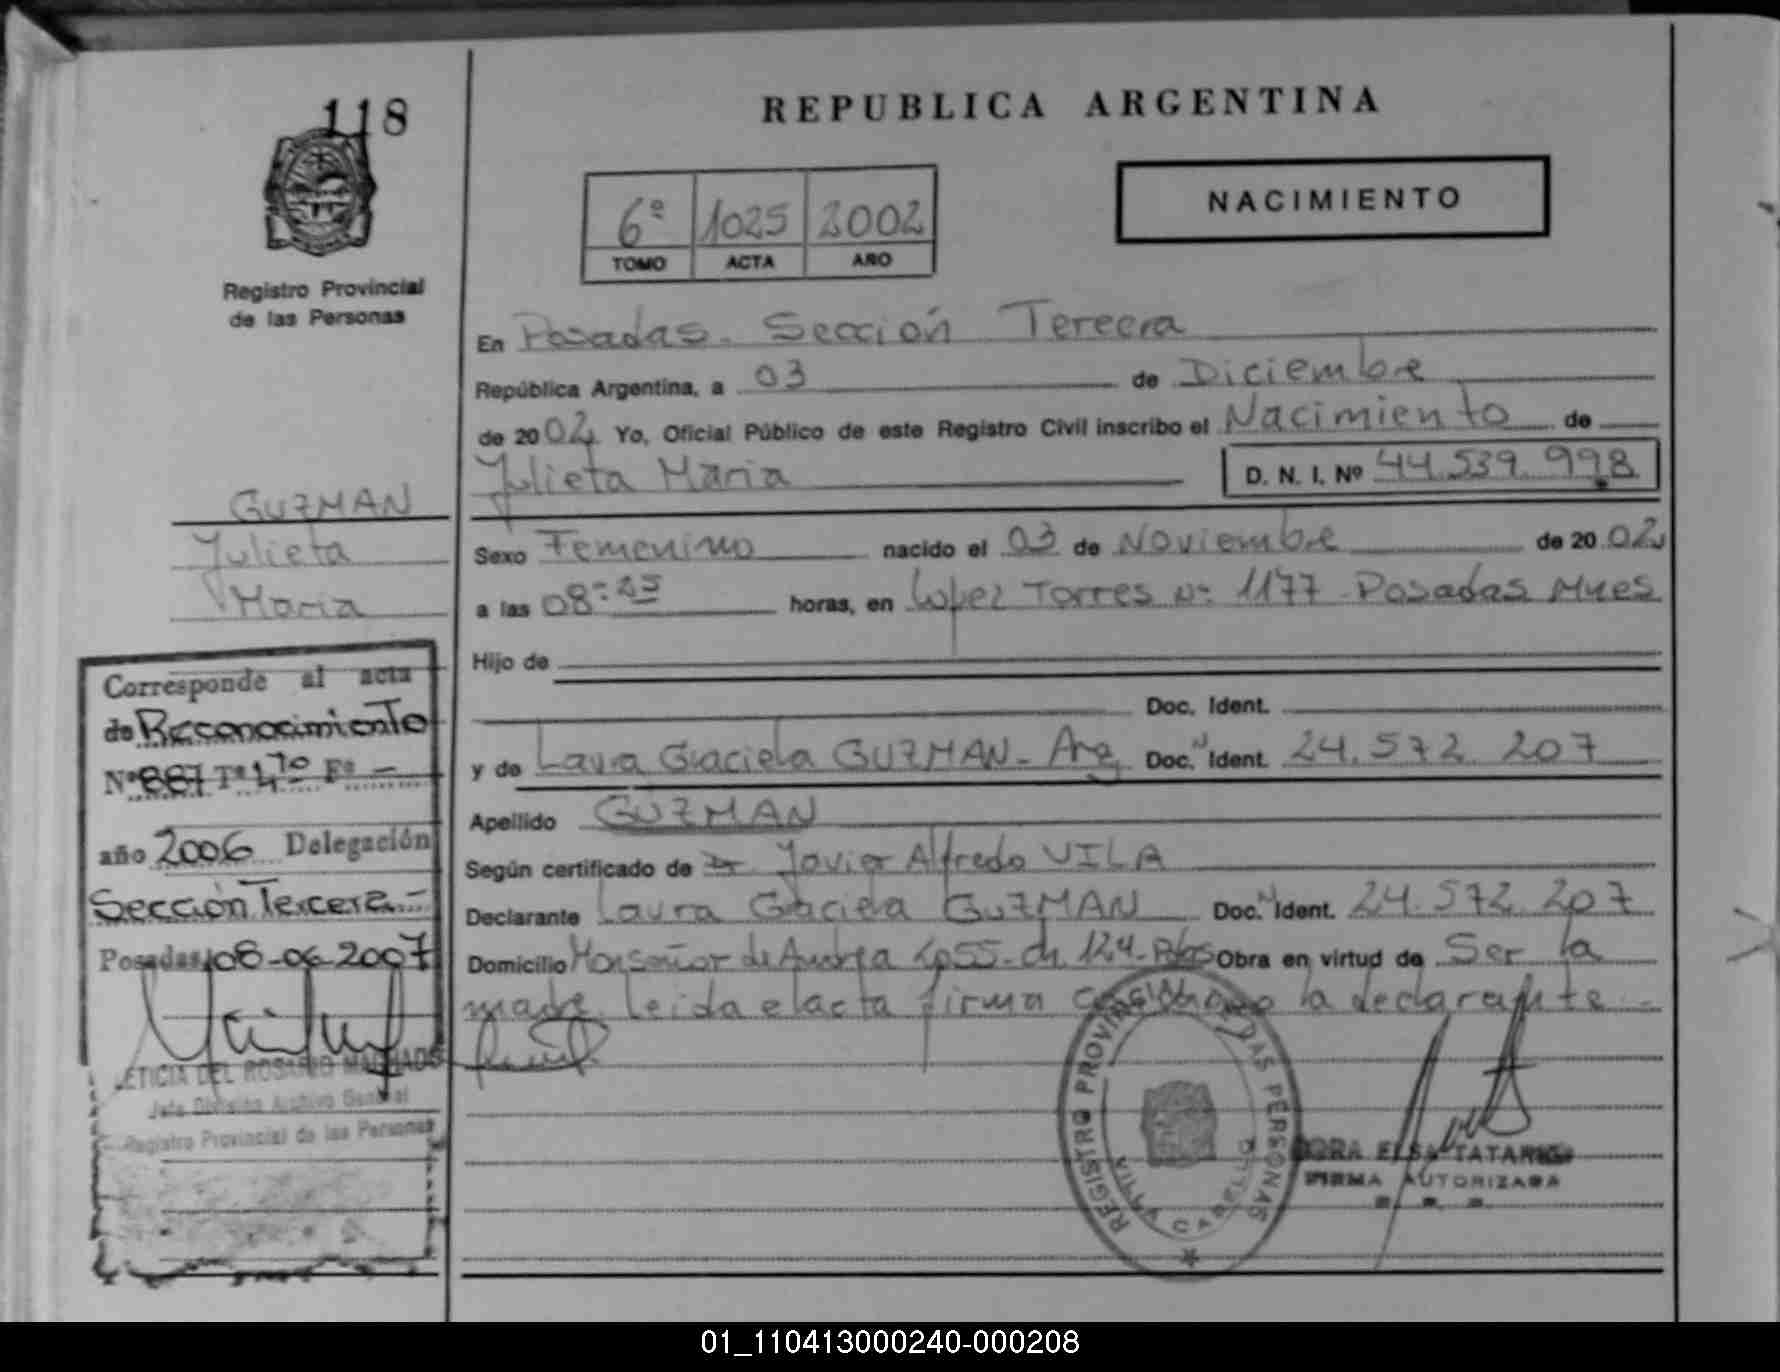 118
Registro Provincial
de las Personas
REPUBLICA ARGENTINA
6º 1025 2002
TOMO ACTA AÑO
NACIMIENTO
En Posadas. Sección Tercera
República Argentina, a 03 de Diciembre
de 2002 Yo, Oficial Público de este Registro Civil inscribo el Nacimiento de
Julieta Maria D. N. I. Nº 44.539.998
GUZMAN
Julieta
Maria
Sexo Femenino nacido el 03 de Noviembre de 2002
a las 08:25 horas, en Lopez Torres Nº 1177 Posadas Mnes
Hijo de
Doc. Ident.
y de Laura Graciela GUZMAN - Arg Doc. Ident. 24.572.207
Apellido GUZMAN
Según certificado de Dr Javier Alfredo VILA
Declarante Laura Graciela GUZMAN Doc. Ident. 24.572.207
Domicilio Monseñor de Andrea 4055 - ch. 124 - Pdas Obra en virtud de Ser la
madre. Leida el acta firma la declarante -
Corresponde al acta
de Reconocimiento
Nº 887 Tº 4to Fº -
año 2006 Delegación
Sección Tercera -
Posadas, 08-06-2007
LETICIA DEL ROSARIO MACHADO
Jefe División Archivo General
Registro Provincial de las Personas
REGISTRO PROVINCIAL DE LAS PERSONAS
VILLA CABELLO
ELSA
FIRMA AUTORIZADA
01_110413000240-000208